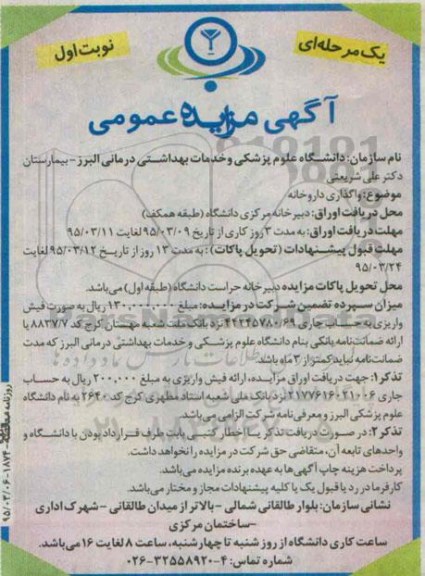 یک مرحله‌ای
نوبت اول
آگهی مزایده عمومی
نام سازمان: دانشگاه علوم پزشکی و خدمات بهداشتی درمانی البرز - بیمارستان
دکتر علی شریعتی
موضوع: واگذاری داروخانه
محل دریافت اوراق: دبیرخانه مرکزی دانشگاه (طبقه همکف)
مهلت دریافت اوراق: به مدت ۳ روز کاری از تاریخ ۹۵/۰۳/۰۹ لغایت ۹۵/۰۳/۱۱
مهلت قبول پیشنهادات (تحویل پاکات): به مدت ۱۳ روز از تاریخ ۹۵/۰۳/۱۲ لغایت
۹۵/۰۳/۲۴
محل تحویل پاکات مزایده دبیرخانه حراست دانشگاه (طبقه اول) می‌باشد.
میزان سپرده تضمین شرکت در مزایده: مبلغ ریال به صورت فیش
واریزی به حساب جاری نزد بانک ملت شعبه مهستان کرج کد ۸۸۳۷/۷ یا
ارائه ضمانت‌نامه بانکی بنام دانشگاه علوم پزشکی و خدمات بهداشتی درمانی البرز که مدت
ضمانت‌نامه نباید کمتر از ۳ ماه باشد.
تذکر۱: جهت دریافت اوراق مزایده، ارائه فیش واریزی به مبلغ ۲۰۰,۰۰۰ ریال به حساب
جاری نزد بانک ملی شعبه استاد مطهری کرج کد ۲۶۴۰ به نام دانشگاه
علوم پزشکی البرز و معرفی‌نامه شرکت الزامی می‌باشد.
تذکر۲: در صورت دریافت تذکر یا اخطار کتبی بابت طرف قرارداد بودن با دانشگاه و
واحدهای تابعه آن، متقاضی حق شرکت در مزایده را نخواهد داشت.
پرداخت هزینه چاپ آگهی‌ها به عهده برنده مزایده می‌باشد.
کارفرما در رد یا قبول یک یا کلیه پیشنهادات مجاز و مختار می‌باشد.
نشانی سازمان: بلوار طالقانی شمالی - بالاتر از میدان طالقانی - شهرک اداری
-ساختمان مرکزی
ساعت کاری دانشگاه از روز شنبه تا چهارشنبه، ساعت ۸ لغایت ۱۶ می‌باشد.
شماره تماس: ۴-۳۲۵۵۸۹۲۰-۰۲۶
روزنامه
۹۵/۰۳/۰۶-۱۸۷۴